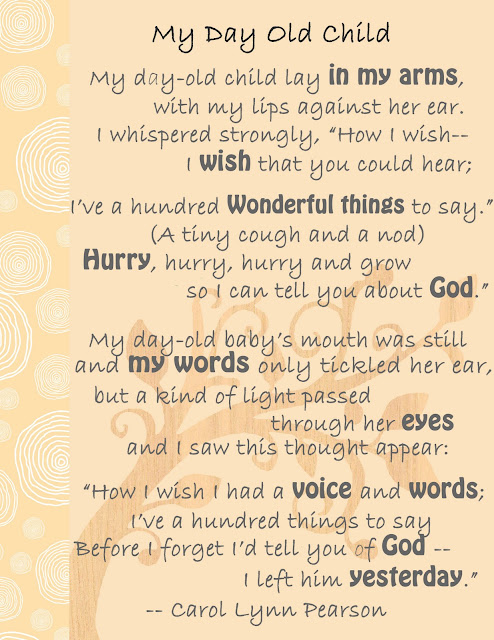 My Day Old Child
My day-old child lay in my arms,
with my lips against her ear.
I whispered strongly, “How I wish--
I wish that you could hear;
I’ve a hundred Wonderful things to say.”
(A tiny cough and a nod)
Hurry, hurry, hurry and grow
so I can tell you about God.”
My day-old baby’s mouth was still
and my words only tickled her ear,
but a kind of light passed
through her eyes
and I saw this thought appear:
“How I wish I had a voice and words;
I’ve a hundred things to say
Before I forget I’d tell you of God --
I left him yesterday.”
-- Carol Lynn Pearson